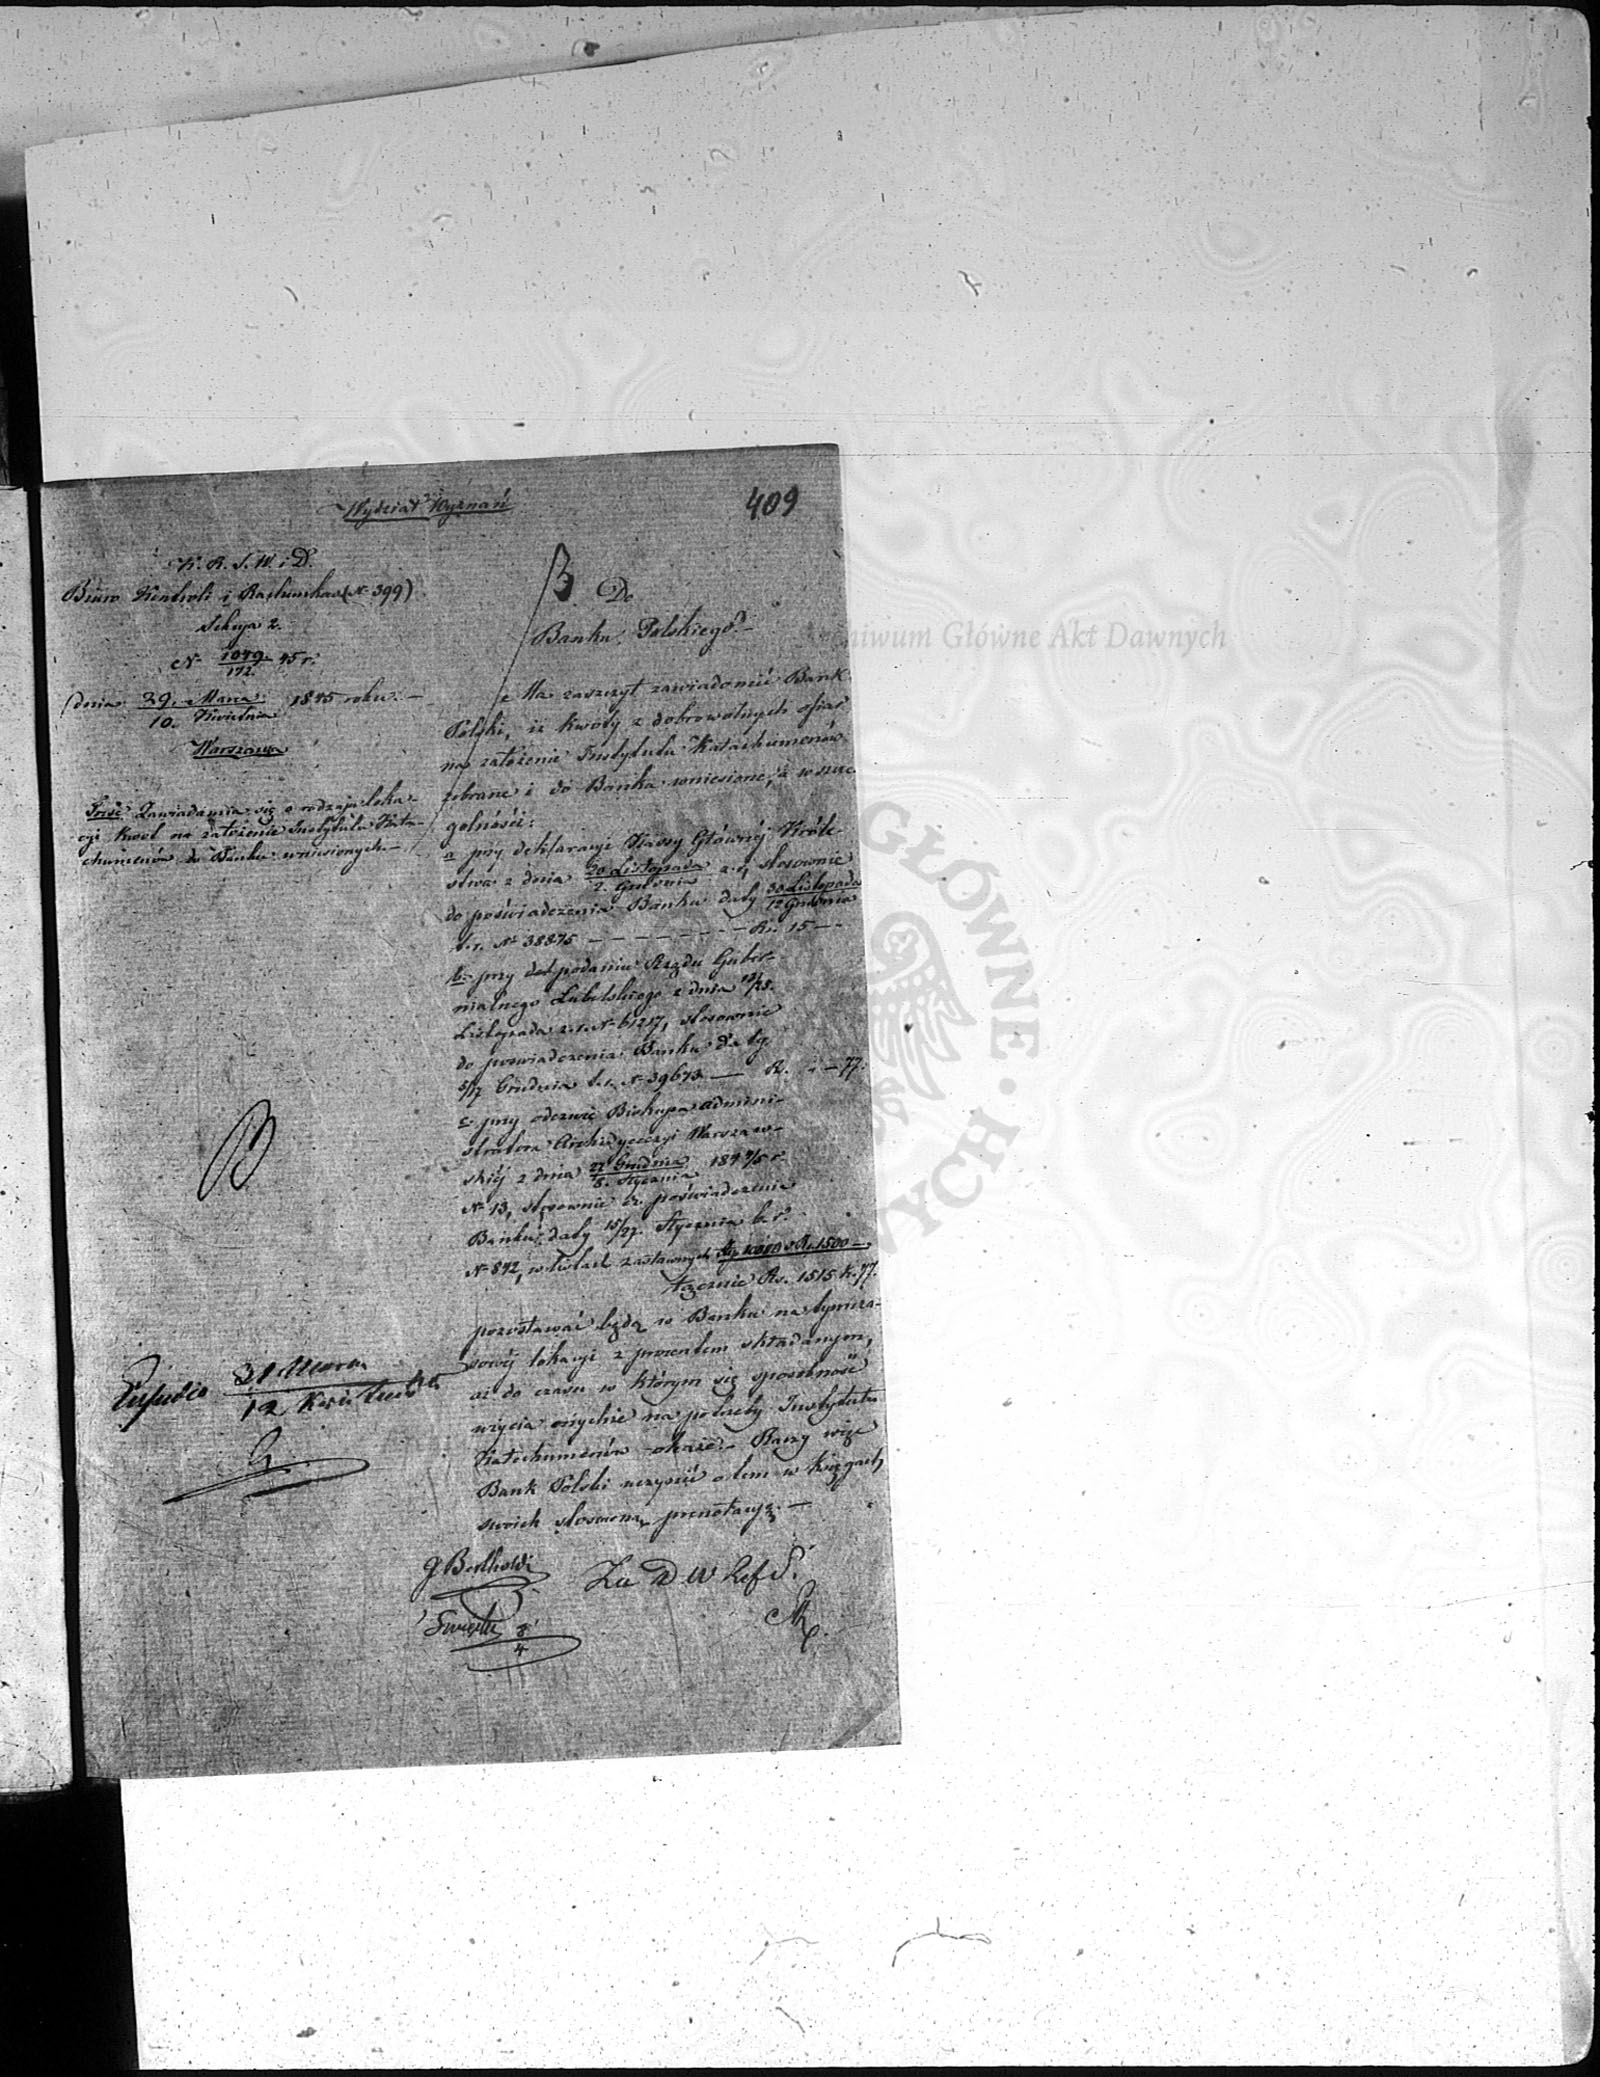 Wydział Wyznań
409
K. R. S. W. i D.
Biuro Kontroli i Rachunkow (N. 399)
Sekcya 2.
N. 1049/172. 45 r.
dnia 29. Marca / 10. Kwietnia 1845 roku. –
Warszawa
Treść Zawiadamia się o rodzaju loka-
cyi kwot na założenie Instytutu Kata-
chumenów do Banku wniesionych. –
Do
Banku Polskiego. –
Ma zaszczyt zawiadomić Bank
Polski, iż kwoty z dobrowolnych ofiar
na założenie Instytutu Katachumenów
zebrane i do Banku wniesione, a w szcze-
gólności:
a przy deklaracyi Kassy Głównej Króle-
stwa z dnia 20 Listopada / 2. Grudnia z. r., stosownie
do poświadczenia Banku daty 30 Listopada / 12 Grudnia
t. r. N. 38875 – – – – – – – Rs. 15 – –
b. przy podaniu Rządu Guber-
nialnego Lubelskiego z dnia 13/25.
Listopada z. r. N. 61217, stosownie
do poswiadczenia Banku daty
5/17 Grudnia t. r. N. 39673 — Rs. – – 77.
c. przy odezwie Biskupa Admini-
stratora Archidyecezyi Warszaw-
skiéj z dnia 27 Grudnia / 8. Stycznia 1844/5 r.
N. 13, stosownie do poświadczenia
Banku daty 15/27. Stycznia b. r.
N. 842, w listach zastawnych Rs. 1500 –
łącznie Rs. 1515 k. 77.
pozostawać będą w Banku na tymcza-
sowéj lokacyi z procentem składanym,
aż do czasu w którym się sposobność
użycia onychże na potrzeby Instytutu
Katechumenów okaże. – Raczy więc
Bank Polski uczynić o tem w księgach
swoich stosowną prenotacyę. –
31 Marca
12 Kwietnia
Za D W
8/4
Archiwum Główne Akt Dawnych